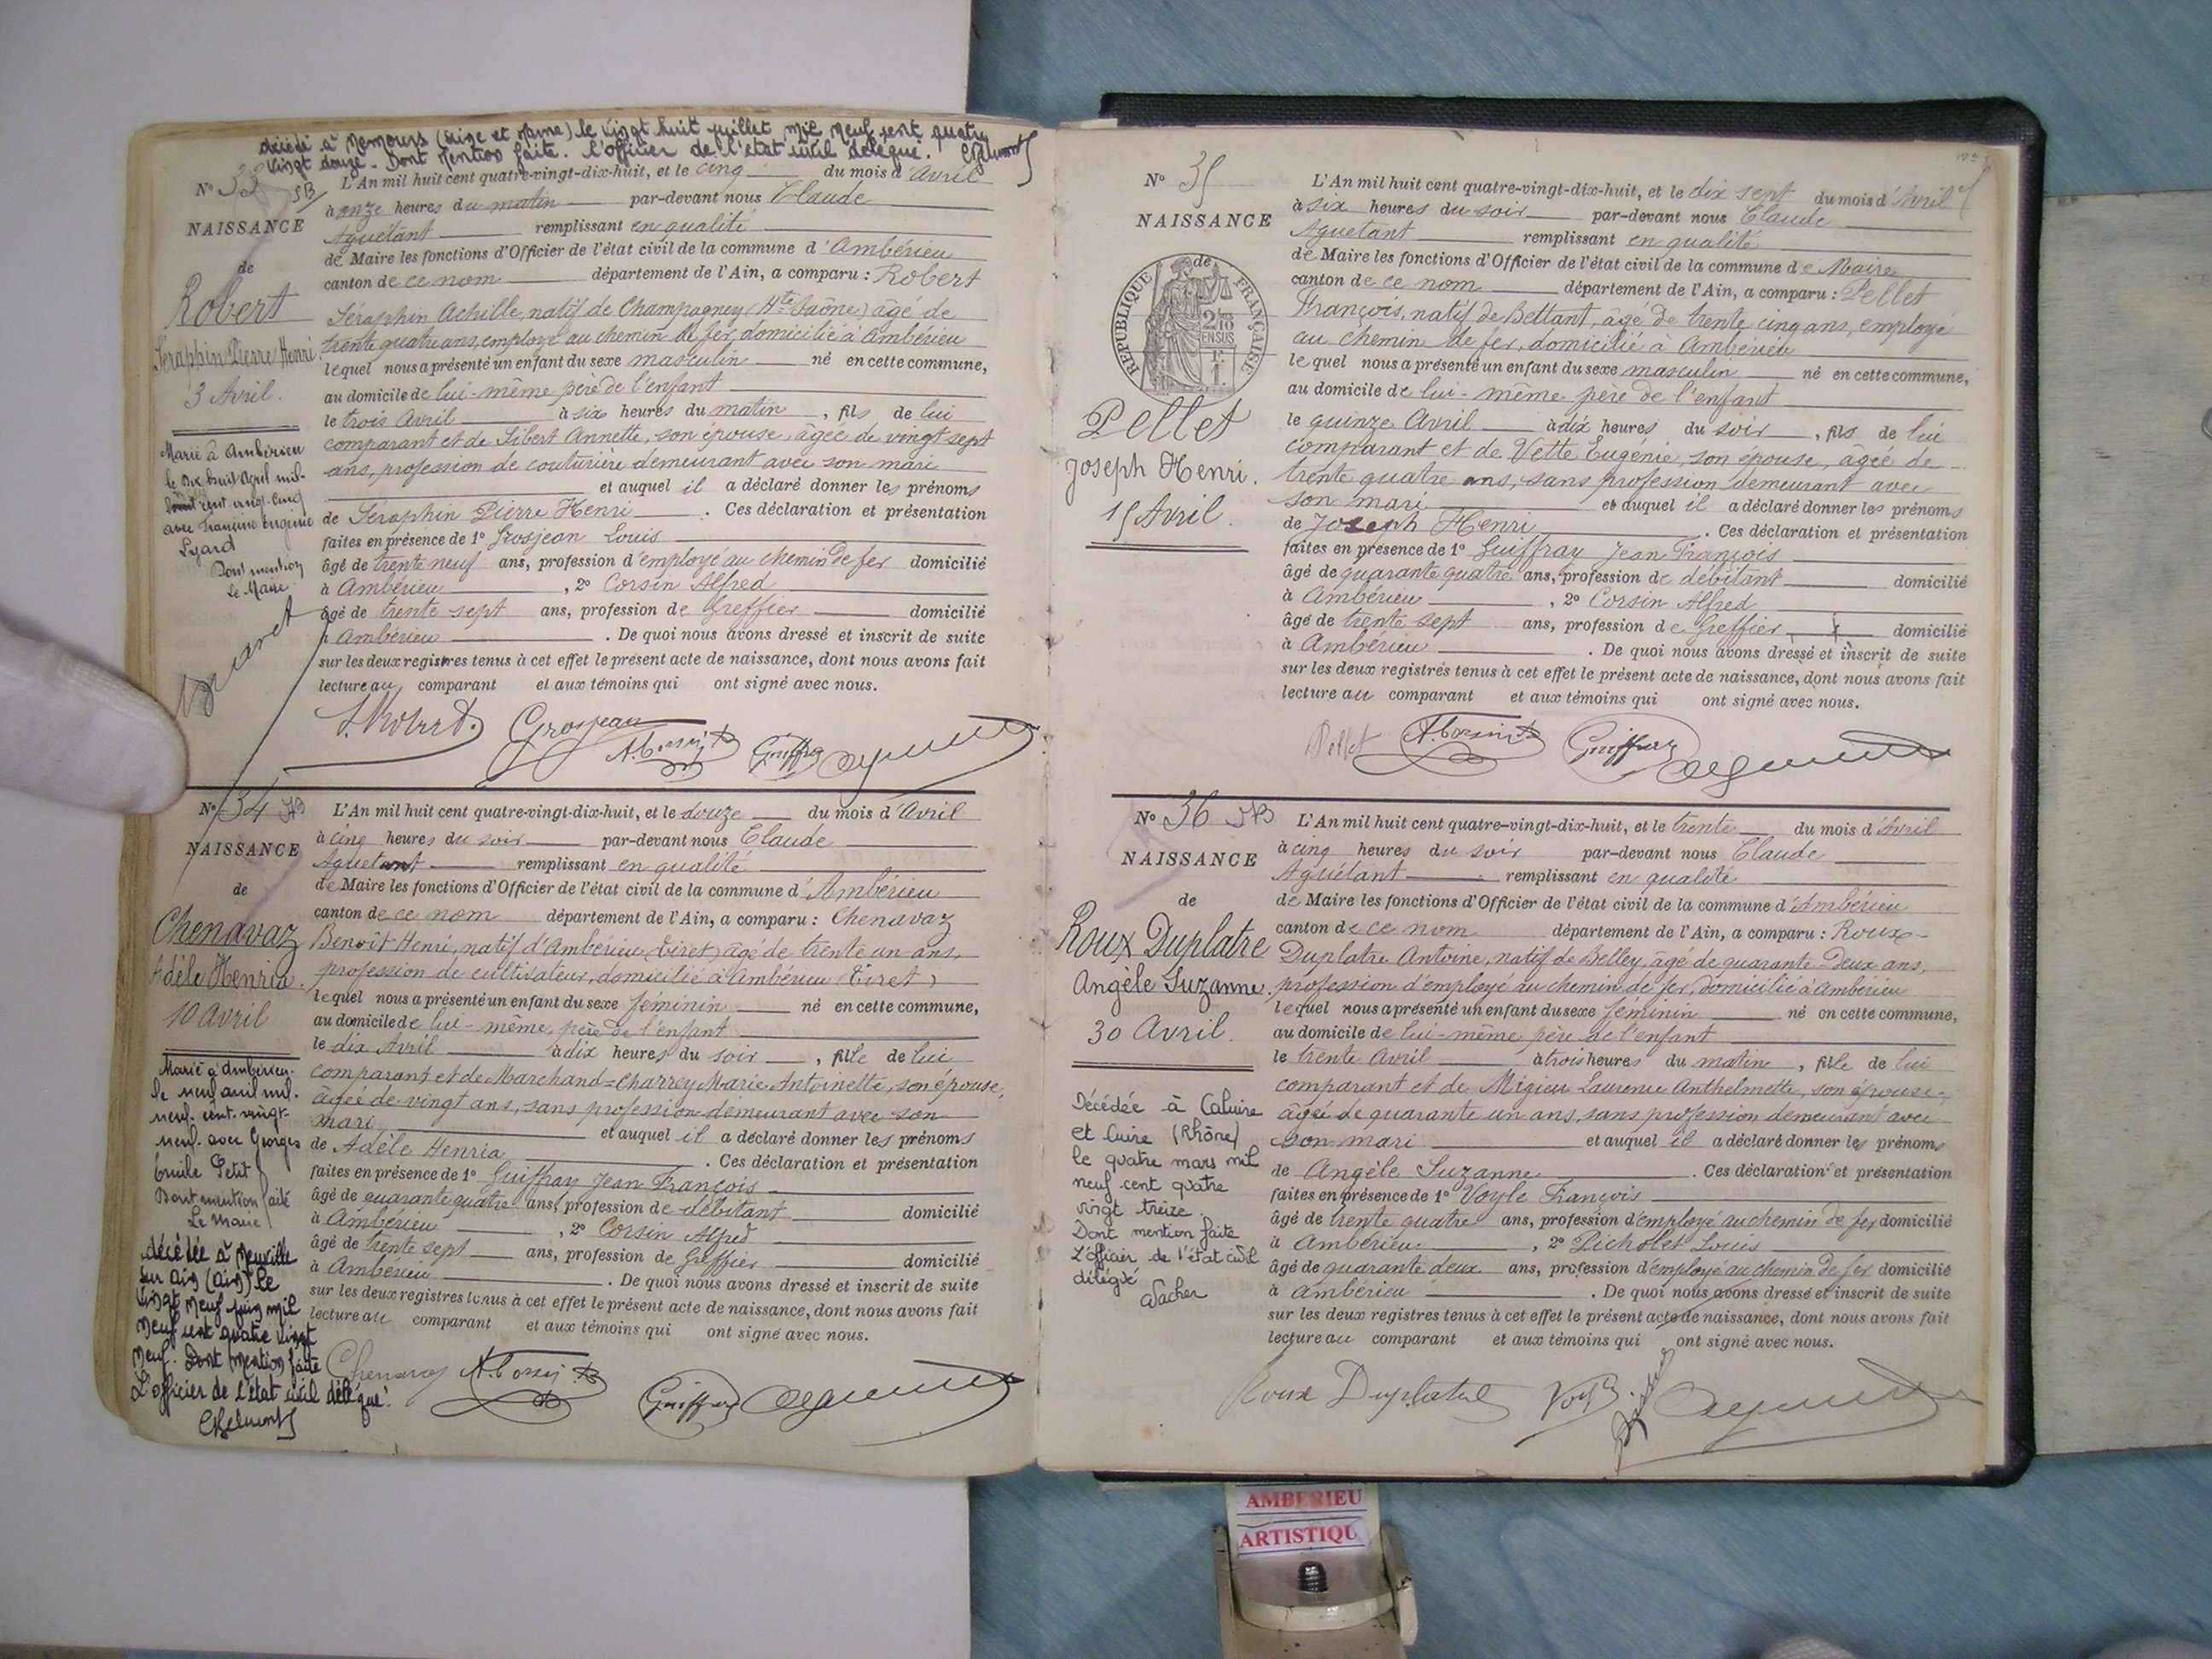 décédé à Nemours (Seine et Marne) le vingt huit juillet mil neuf cent quatre
vingt douze. Dont mention faite. L'officier de l'état civil délégué.
N° 33
NAISSANCE
de
Robert
Séraphin Pierre Henri
3 Avril.
Marié à Ambérieu
le dix huit Avril mil
neuf cent vingt-cinq
avec Françoise Eugénie
Lyard
Dont mention
Le Maire
L'An mil huit cent quatre-vingt-dix-huit, et le cinq du mois d'Avril
à onze heures du matin par-devant nous Claude
Aguétant remplissant en qualité
de Maire les fonctions d'Officier de l'état civil de la commune d'Ambérieu
canton de ce nom département de l'Ain, a comparu : Robert
Séraphin Achille, natif de Champagney (Hte Saône) âgé de
trente quatre ans, employé au chemin de fer, domicilié à Ambérieu
lequel nous a présenté un enfant du sexe masculin né en cette commune,
au domicile de lui-même père de l'enfant
le trois Avril à six heures du matin, fils de lui
comparant et de Libert Annette, son épouse, âgée de vingt sept
ans, profession de couturière demeurant avec son mari
et auquel il a déclaré donner les prénoms
de Séraphin Pierre Henri. Ces déclaration et présentation
faites en présence de 1° Grosjean Louis
âgé de trente neuf ans, profession d'employé au chemin de fer domicilié
à Ambérieu, 2° Corsin Alfred
âgé de trente sept ans, profession de Greffier domicilié
à Ambérieu. De quoi nous avons dressé et inscrit de suite
sur les deux registres tenus à cet effet le présent acte de naissance, dont nous avons fait
lecture au comparant et aux témoins qui ont signé avec nous.
S. Robert. Grosjean A. Corsin Guiffray Aguétant
N° 34
NAISSANCE
de
Chenavaz
Adèle Henria.
10 Avril
Marié à Ambérieu
le neuf avril mil
neuf cent vingt
neuf avec Georges
Emile Petit
Dont mention faite
Le Maire
décédée à Neuville
sur Ain (Ain) le
vingt neuf juin mil
neuf cent quatre vingt
neuf. Dont mention faite
L'officier de l'état civil délégué.
L'An mil huit cent quatre-vingt-dix-huit, et le douze du mois d'Avril
à cinq heures du soir par-devant nous Claude
Aguetant remplissant en qualité
de Maire les fonctions d'Officier de l'état civil de la commune d'Ambérieu
canton de ce nom département de l'Ain, a comparu : Chenavaz
Benoît Henri, natif d'Ambérieu (Tiret) âgé de trente un ans,
profession de cultivateur, domicilié à Ambérieu (Tiret)
lequel nous a présenté un enfant du sexe féminin né en cette commune,
au domicile de lui-même, père de l'enfant
le dix Avril à dix heures du soir, fille de lui
comparant et de Marchand=Charrey Marie Antoinette, son épouse,
âgée de vingt ans, sans profession demeurant avec son
mari et auquel il a déclaré donner les prénoms
de Adèle Henria. Ces déclaration et présentation
faites en présence de 1° Guiffray Jean François
âgé de quarante quatre ans, profession de débitant domicilié
à Ambérieu, 2° Corsin Alfred
âgé de trente sept ans, profession de Greffier domicilié
à Ambérieu. De quoi nous avons dressé et inscrit de suite
sur les deux registres tenus à cet effet le présent acte de naissance, dont nous avons fait
lecture au comparant et aux témoins qui ont signé avec nous.
Chenavaz A. Corsin Guiffray Aguétant
N° 35
NAISSANCE
de
RÉPUBLIQUE FRANÇAISE
2/10
EN SUS
Pellet
Joseph Henri.
15 Avril.
L'An mil huit cent quatre-vingt-dix-huit, et le dix sept du mois d'Avril
à six heures du soir par-devant nous Claude
Aguétant remplissant en qualité
de Maire les fonctions d'Officier de l'état civil de la commune de Maire
canton de ce nom département de l'Ain, a comparu : Pellet
François, natif de Bettant, âgé de trente cinq ans, employé
au chemin de fer, domicilié à Ambérieu
lequel nous a présenté un enfant du sexe masculin né en cette commune,
au domicile de lui-même père de l'enfant
le quinze Avril à dix heures du soir, fils de lui
comparant et de Vette Eugénie, son épouse, âgée de
trente quatre ans, sans profession demeurant avec
son mari et auquel il a déclaré donner les prénoms
de Joseph Henri. Ces déclaration et présentation
faites en présence de 1° Guiffray Jean François
âgé de quarante quatre ans, profession de débitant domicilié
à Ambérieu, 2° Corsin Alfred
âgé de trente sept ans, profession de Greffier domicilié
à Ambérieu. De quoi nous avons dressé et inscrit de suite
sur les deux registres tenus à cet effet le présent acte de naissance, dont nous avons fait
lecture au comparant et aux témoins qui ont signé avec nous.
Pellet A. Corsin Guiffray Aguétant
N° 36
NAISSANCE
de
Roux Duplatre
Angèle Suzanne.
30 Avril.
Décédée à Caluire
et Cuire (Rhône)
le quatre mars mil
neuf cent quatre
vingt treize.
Dont mention faite
L'officier de l'état civil
délégué
L'An mil huit cent quatre-vingt-dix-huit, et le trente du mois d'Avril
à cinq heures du soir par-devant nous Claude
Aguétant remplissant en qualité
de Maire les fonctions d'Officier de l'état civil de la commune d'Ambérieu
canton de ce nom département de l'Ain, a comparu : Roux-
Duplatre Antoine, natif de Belley, âgé de quarante-deux ans,
profession d'employé au chemin de fer, domicilié à Ambérieu
lequel nous a présenté un enfant du sexe féminin né en cette commune,
au domicile de lui-même père de l'enfant
le trente Avril à trois heures du matin, fille de lui
comparant et de Migieu Laurence Anthelmette, son épouse,
âgée de quarante un ans, sans profession demeurant avec
son mari et auquel il a déclaré donner les prénoms
de Angèle Suzanne. Ces déclaration et présentation
faites en présence de 1° Voyle François
âgé de trente quatre ans, profession d'employé au chemin de fer domicilié
à Ambérieu, 2° Picholet Louis
âgé de quarante deux ans, profession d'employé au chemin de fer domicilié
à Ambérieu. De quoi nous avons dressé et inscrit de suite
sur les deux registres tenus à cet effet le présent acte de naissance, dont nous avons fait
lecture au comparant et aux témoins qui ont signé avec nous.
Roux Duplatre Voyle Aguétant
AMBERIEU
ARTISTIQU